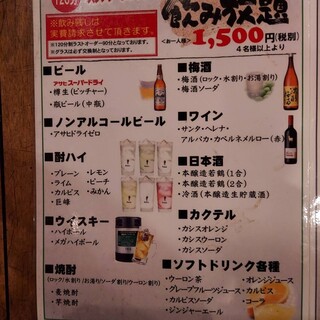 120分
飲み放題
※飲み残しは
実費請求させて頂きます。
※120分制ラストオーダー90分となっております。
※グラスは必ず交換制となっております。
<お一人様> 1,500円(税別)
4名様以上より
■ビール
アサヒスーパードライ
・樽生(ピッチャー)
・瓶ビール(中瓶)
■ノンアルコールビール
・アサヒドライゼロ
■酎ハイ
・プレーン ・レモン
・ライム ・ピーチ
・カルピス ・みかん
・巨峰
■ウイスキー
・ハイボール
・メガハイボール
■焼酎
(ロック/水割り/お湯割り/ソーダ割り/ウーロン割り)
・麦焼酎
・芋焼酎
■梅酒
・梅酒(ロック・水割り・お湯割り)
・梅酒ソーダ
■ワイン
・サンタ・ヘレナ・
アルパカ・カベルネメルロー(赤)
■日本酒
・本醸造若鶴(1合)
・本醸造若鶴(2合)
・冷酒(本醸造生貯蔵酒)
■カクテル
・カシスオレンジ
・カシスウーロン
・カシスソーダ
■ソフトドリンク各種
・ウーロン茶 ・オレンジジュース
・グレープフルーツジュース ・カルピス
・カルピスソーダ ・コーラ
・ジンジャーエール